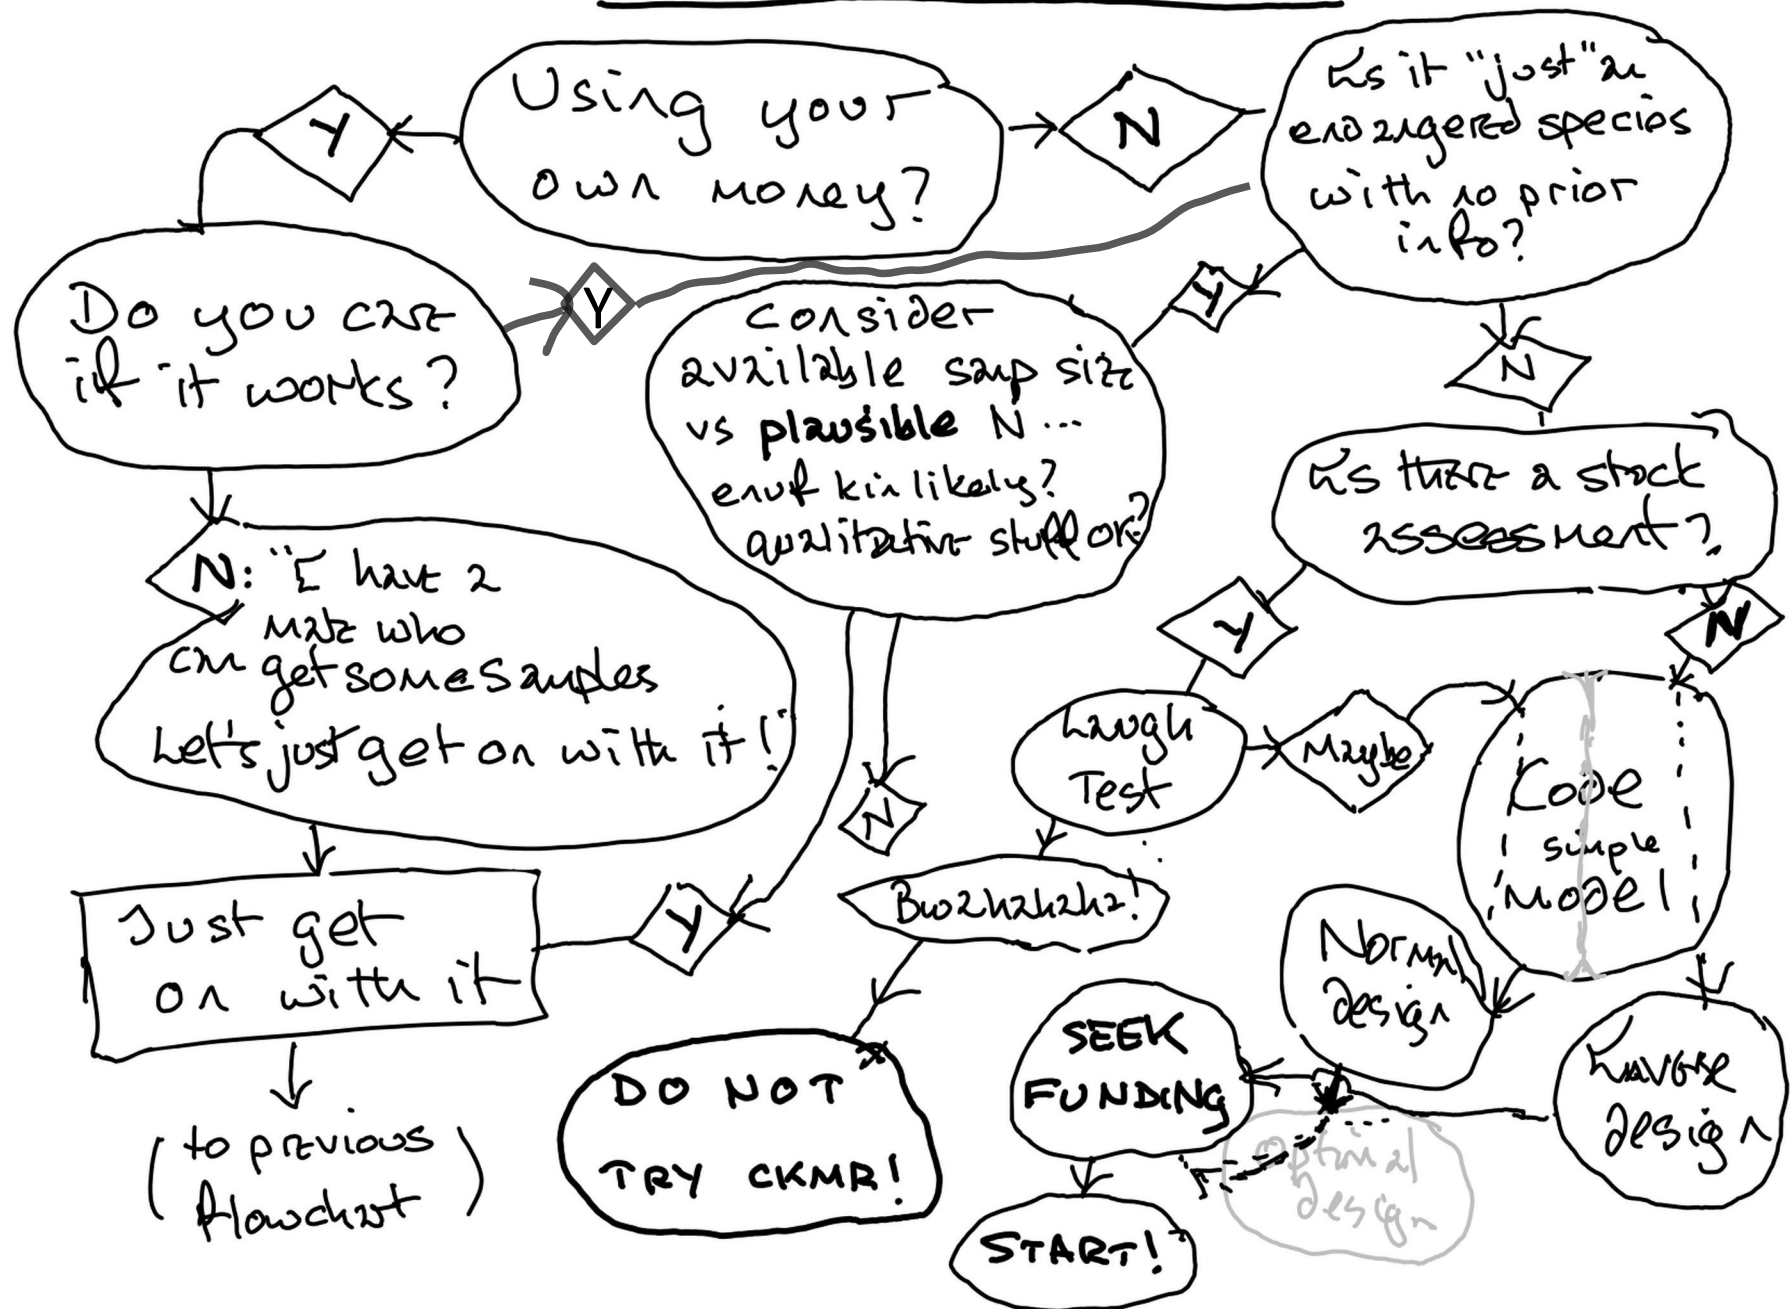 Using your
own money?
Y
N
Is it "just" an
endangered species
with no prior
info?
Do you care
if it works?
Y
Y
N
Consider
available samp size
vs plausible N...
enuf kin likely?
qualitative stuff OK?
Is there a stock
assessment?
Y
N
N: "I have a
mate who
can get some samples
Let's just get on with it!"
N
Laugh
Test
Maybe
Code
simple
model
Just get
on with it
Y
Bwahahaha!
Normal
design
SEEK
FUNDING
DO NOT
TRY CKMR!
design
Optimal
design
START!
(to previous
flowchart)